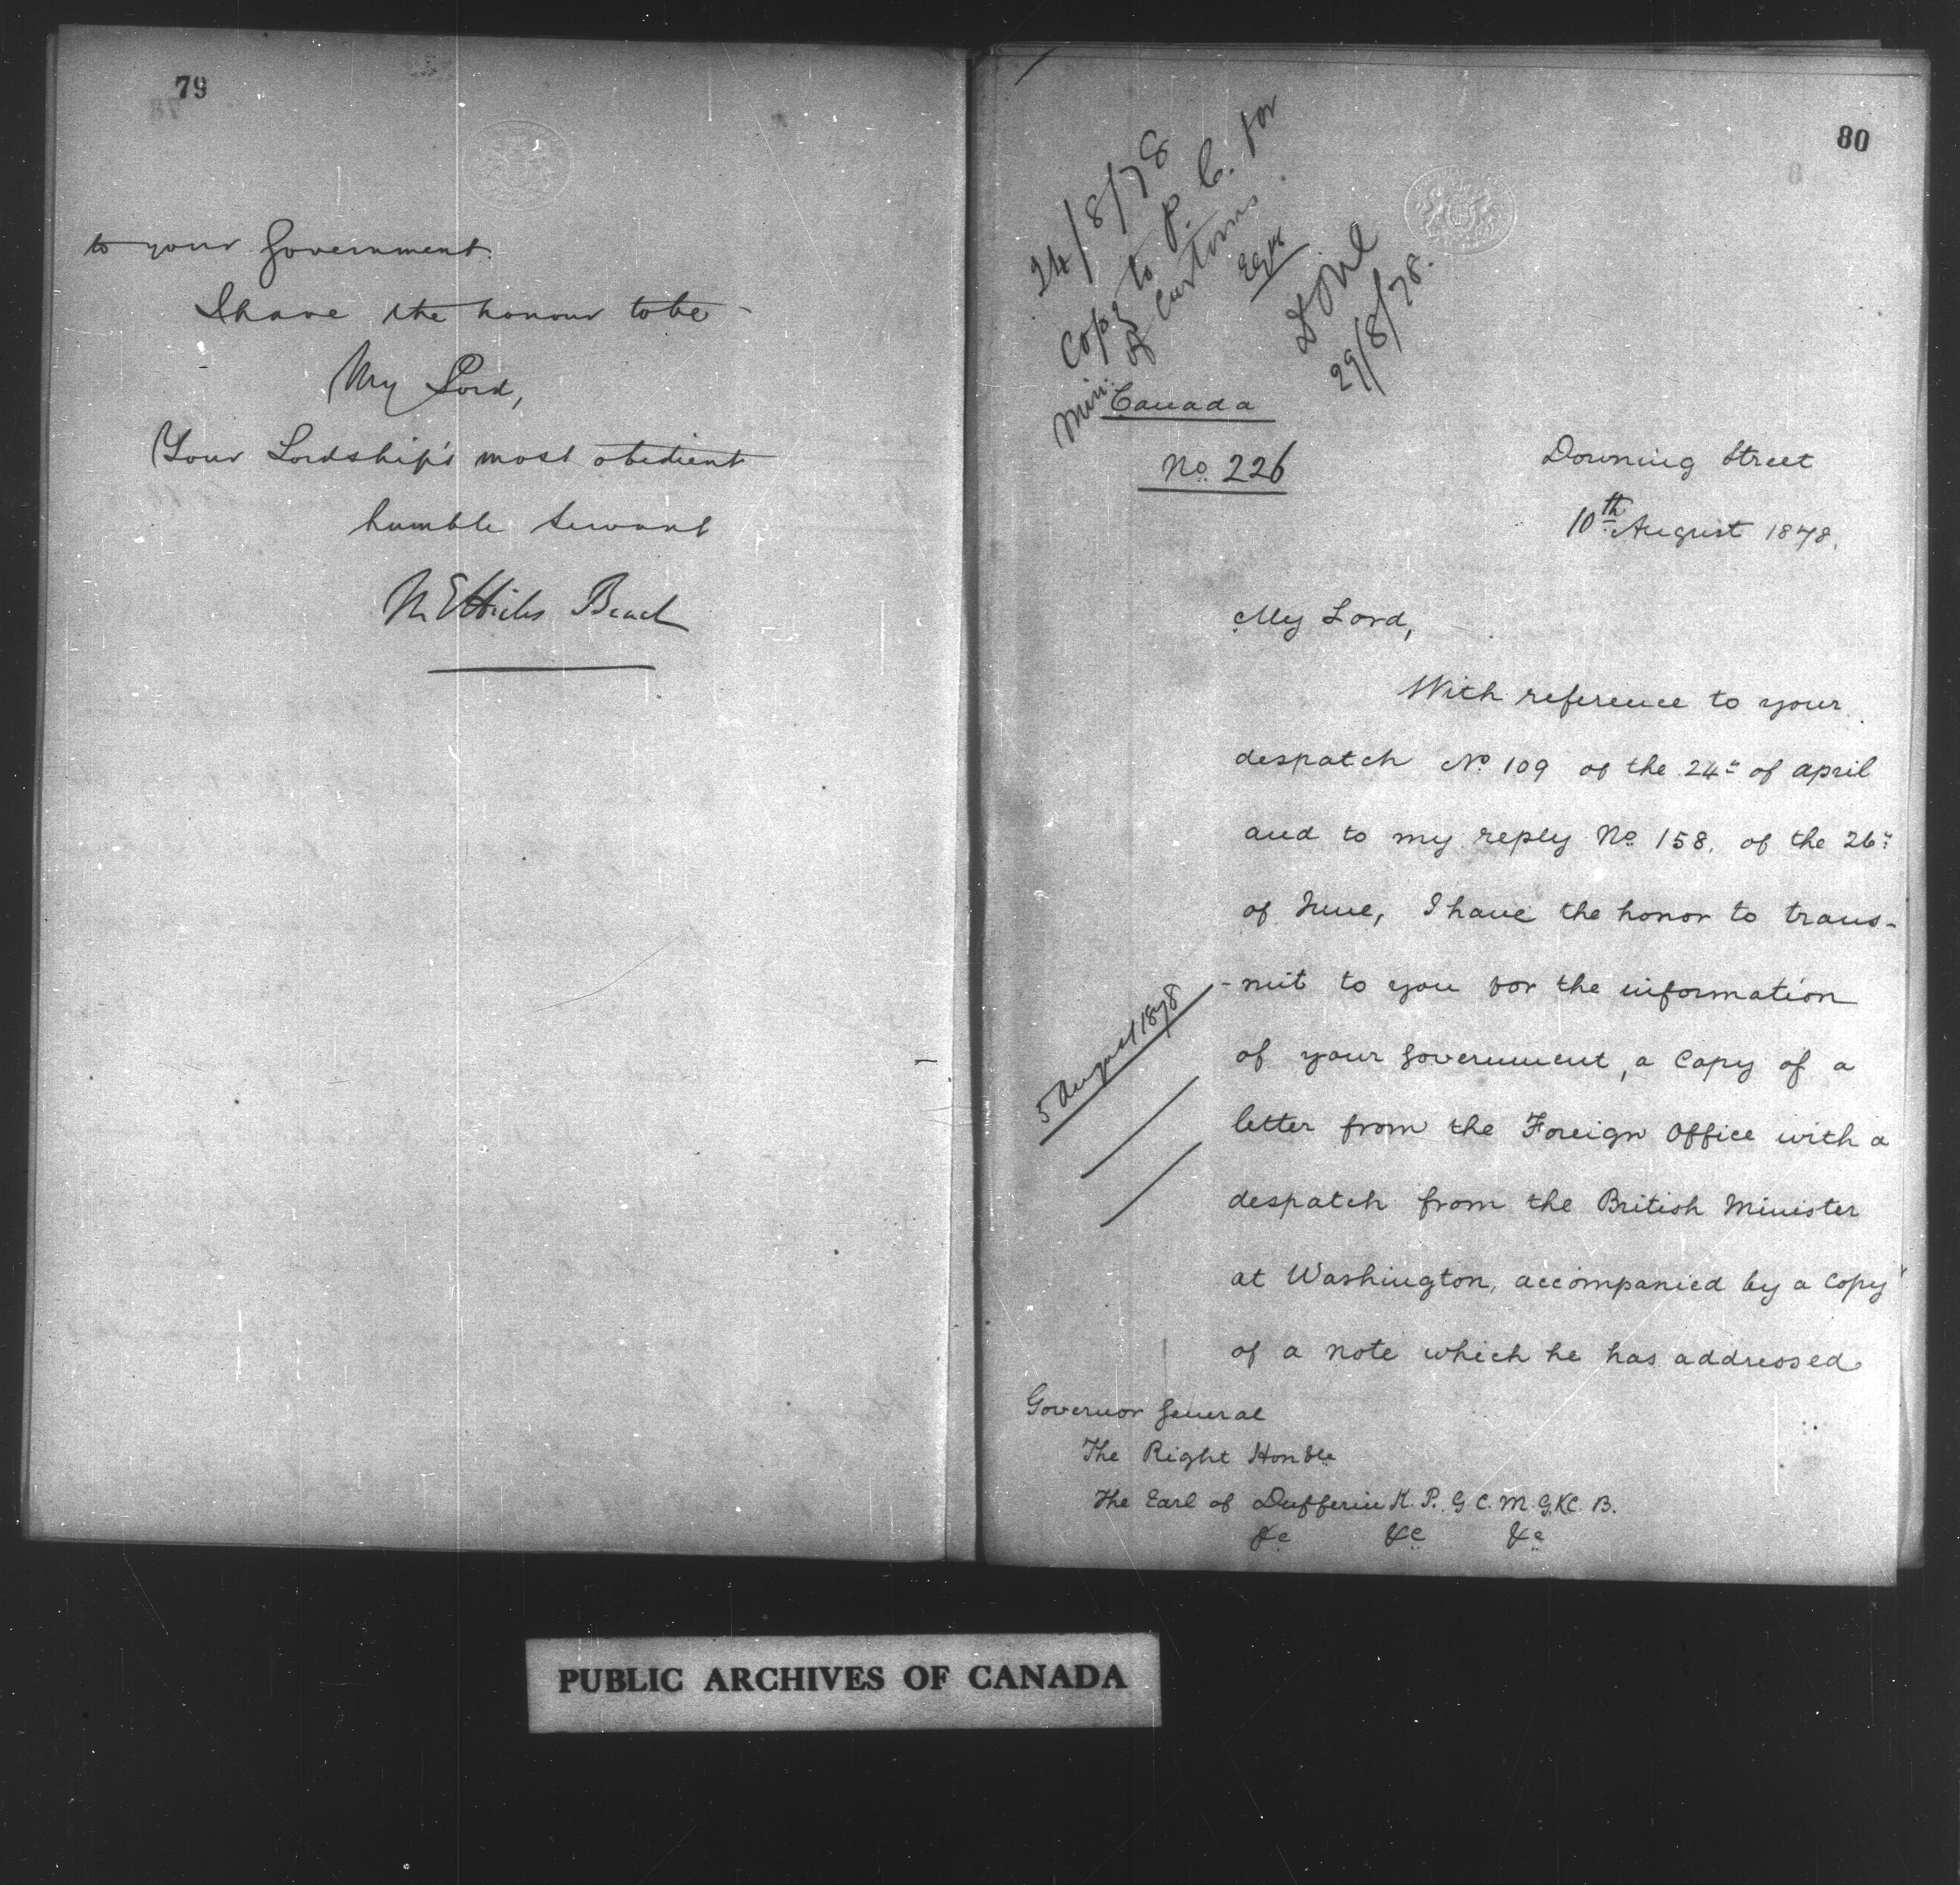 79
to your Government.
I have the honour to be
My Lord,
Your Lordship's most obedient
humble servant
M E Hicks Beach
80
24/8/78
Copy to P. C. for
Min: of Customs.
Done
29/8/78.
Canada
No. 226
Downing Street
10th August 1878.
My Lord,
With reference to your
despatch No 109 of the 24th of april
and to my reply No 158, of the 26th
of June, I have the honor to trans-
-mit to you for the information
of your Government, a Copy of a
letter from the Foreign Office with a
despatch from the British Minister
at Washington, accompanied by a Copy
of a note which he has addressed
5 August 1878
Governor General
The Right Honble
The Earl of Dufferin K. P. G. C. M. G. K. C. B.
&c &c &c
PUBLIC ARCHIVES OF CANADA